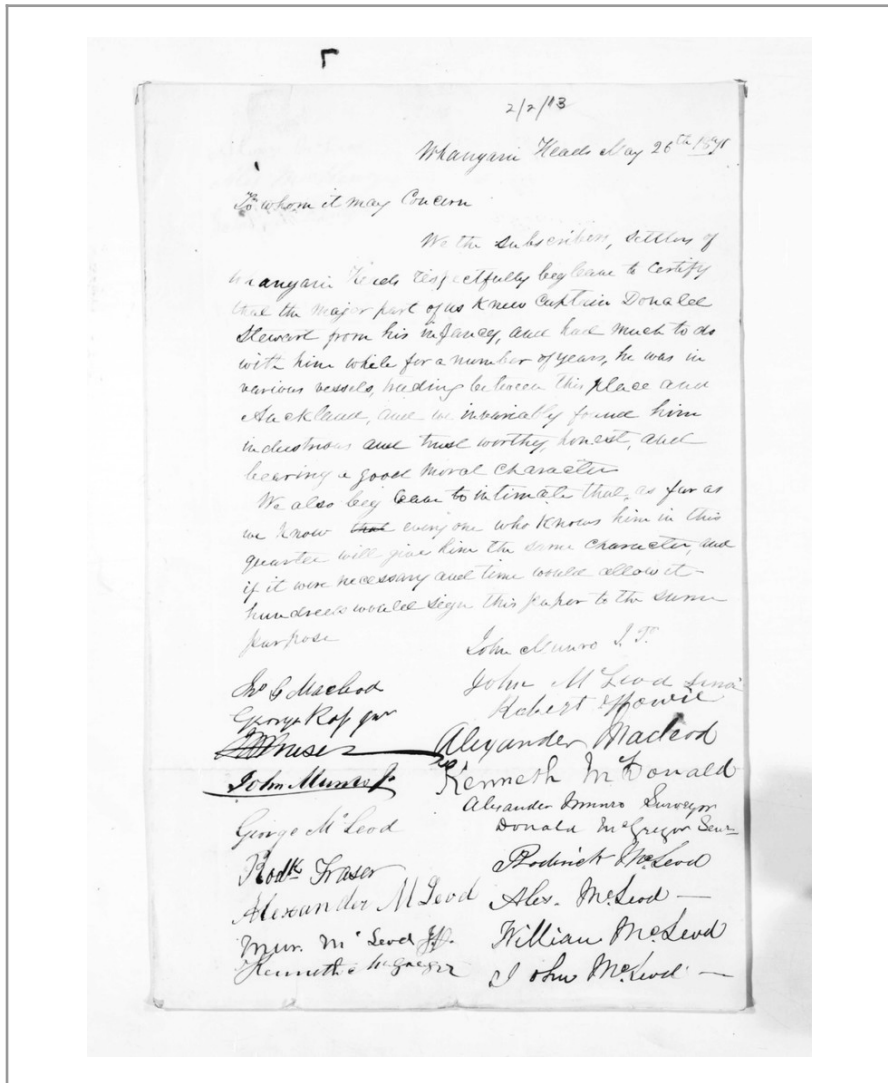 2/2/13
Whangarei Heads May 26th
To whom it may Concern
We the subscribers, settlers of
Whangarei Heads respectfully beg leave to certify
that the major part of us knew Captain Donald
Stewart from his infancy, and had much to do
with him while for a number of years, he was in
various vessels, trading between this place and
Auckland, and we invariably found him
industrious and trust worthy, honest, and
bearing a good moral character
We also beg leave to intimate that, as far as
we know that every one who knows him in this
quarter will give him the same character, and
if it were necessary and time would allow it
hundreds would sign this paper to the same
purpose
John Munro J.P.
Jno G Macleod
John McLeod Senr
George Ross Jnr
Robert Howie
Fraser
Alexander Macleod
John Munro Jr
Kenneth McDonald
Alexander Munro Surveyor
George McLeod
Donald McGregor Senr
Rodk Fraser
Roderick McLeod
Alexander McLeod
Alex. McLeod
Mur. McLeod
William McLeod
Kenneth McGregor
John McLeod